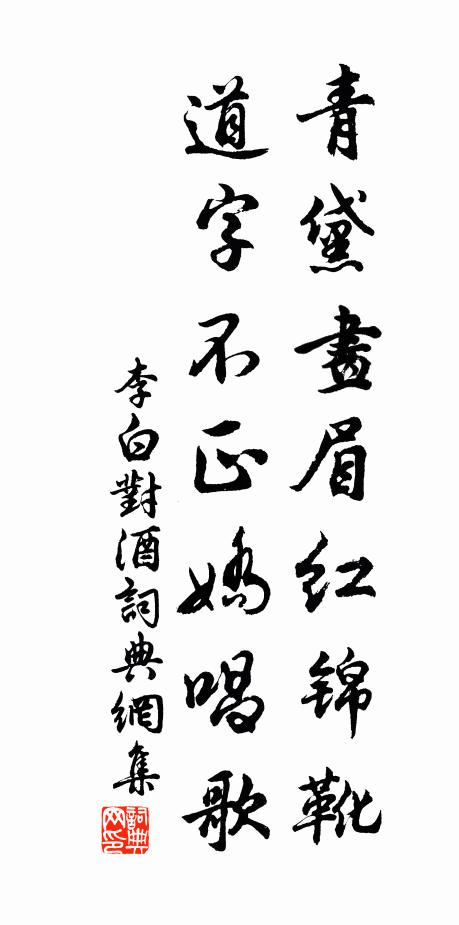 青黛畫眉红锦靴
道字不正嬌唱歌
李白對酒詞典網集
詞典
网印